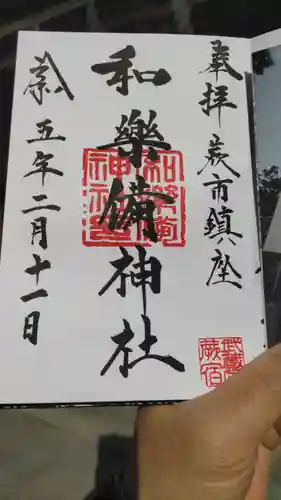 奉拝 蕨市鎮座
和樂備神社
令和五年二月十一日
武蔵
蕨宿